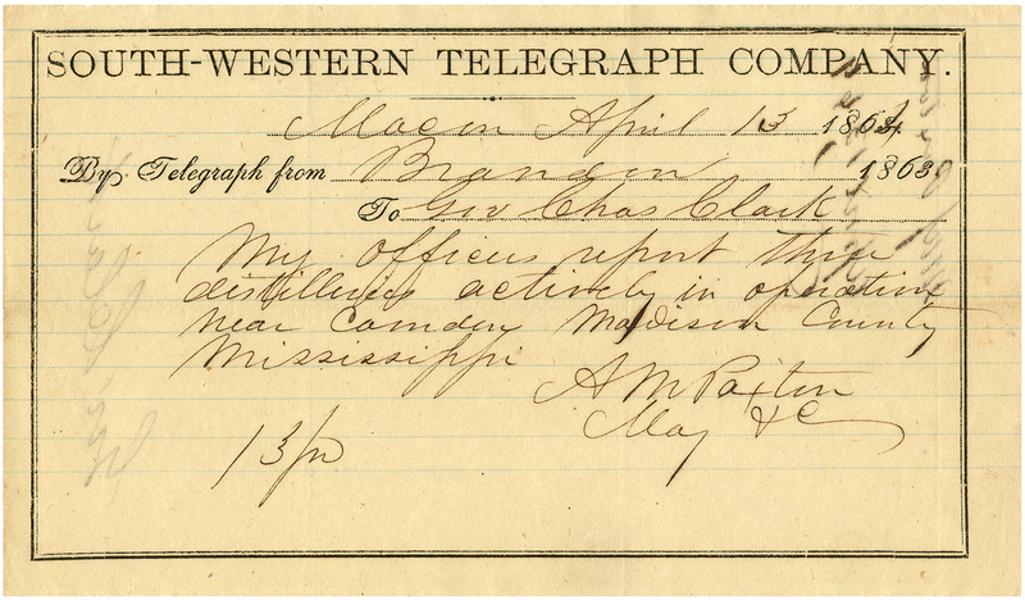 SOUTH-WESTERN TELEGRAPH COMPANY.
Macon April 13 1864
By Telegraph from Brandon 1863
To Gov Chas Clark
My officers report three
distilleries actively in operation
near Camden Madison County
Mississippi
A M Paxton
Maj &c
13/